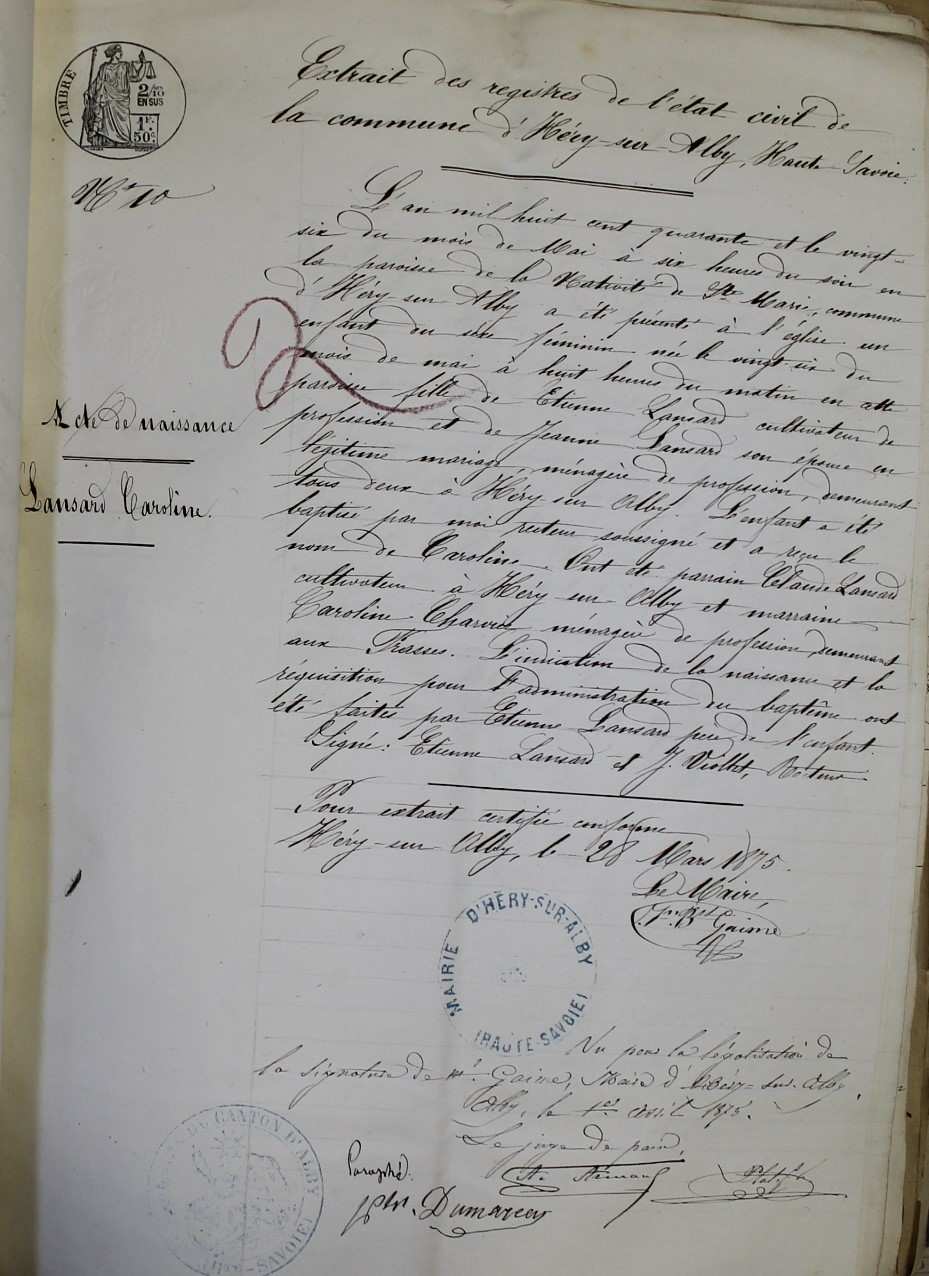 TIMBRE
2/10
EN SUS
1F.
50c.
Extrait des registres de l'état civil de
la commune d'Héry-sur-Alby, Haute Savoie.
N° 10
L'an mil huit cent quarante et le vingt-
six du mois de Mai à six heures du soir en
la paroisse de la Nativité de Ste Marie, commune
d'Héry sur Alby a été présenté à l'église un
enfant du sexe féminin née le vingt six du
mois de mai à huit heures du matin en cette
paroisse fille de Etienne Lansard cultivateur de
profession et de Jeanne Lansard son épouse en
légitime mariage, ménagère de profession, demeurant
tous deux à Héry sur Alby. L'enfant a été
baptisé par moi recteur soussigné et a reçu le
nom de Caroline. Ont été parrain Claude Lansard
cultivateur à Héry sur Alby et marraine
Caroline Charvet ménagère de profession, demeurant
aux Frasses. L'indication de la naissance et la
réquisition pour l'administration du baptême ont
été faites par Etienne Lansard père de l'enfant.
Signé: Etienne Lansard et J. Viollet, Recteur.
Acte de naissance
Lansard Caroline.
Pour extrait certifié conforme
Héry-sur Alby, le 28 Mars 1875.
Le Maire,
Gaime
MAIRIE D'HÉRY-SUR-ALBY
(HAUTE-SAVOIE)
Vu pour la légalisation de
la signature de Mr. Gaime, Maire d'Héry-sur-Alby.
Alby, le 1er avril 1875.
Le juge de paix,
DU CANTON D'ALBY
(Hte-SAVOIE)
Paraphé.
Dumarcey